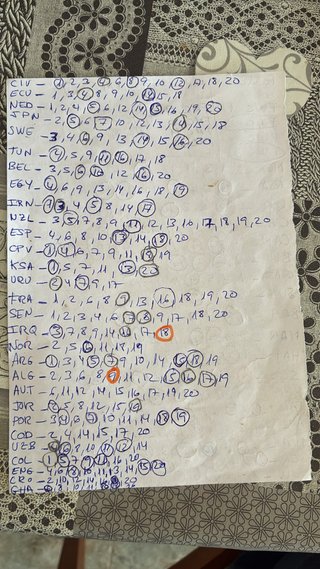 CIV - 1, 2, 3, 4, 6, 8, 9, 10, 12, 17, 18, 20
ECU - 1, 3, 4, 8, 9, 10, 11, 14, 15, 18
NED - 1, 2, 4, 5, 6, 12, 14, 15, 16, 19, 20
JPN - 2, 5, 6, 7, 10, 12, 13, 14, 15, 18
SWE - 3, 4, 6, 9, 13, 14, 15, 16, 20
TUN - 2, 5, 9, 11, 16, 17, 18
BEL - 3, 5, 6, 10, 12, 16, 20
EGY - 4, 6, 9, 13, 14, 16, 18, 19
IRN - 3, 4, 5, 8, 14, 17
NZL - 3, 5, 7, 8, 9, 11, 12, 13, 10, 17, 18, 19, 20
ESP - 4, 6, 8, 10, 13, 14, 18, 20
CPV - 1, 4, 6, 7, 9, 11, 18, 19
KSA - 1, 5, 7, 11, 13, 20
URU - 2, 4, 7, 9, 17
FRA - 1, 2, 6, 8, 9, 13, 16, 18, 19, 20
SEN - 1, 2, 3, 4, 6, 7, 8, 9, 17, 18, 20
IRQ - 3, 7, 8, 9, 14, 11, 17, 18
NOR - 2, 5, 6, 11, 18, 19
ARG - 1, 3, 4, 5, 7, 9, 10, 14, 15, 18, 19
ALG - 2, 3, 6, 8, 9, 11, 12, 15, 16, 17, 19
AUT - 6, 11, 12, 14, 15, 16, 17, 19, 20
JOR - 2, 5, 8, 12, 15, 19
POR - 3, 4, 6, 7, 10, 11, 14, 18, 19
COD - 2, 4, 14, 15, 17, 20
UZB - 6, 8, 10, 11, 12, 14
COL - 1, 5, 7, 9, 10, 16, 20
ENG - 6, 8, 10, 11, 13, 14, 15, 20
CRO - 2, 10, 12, 14, 20
GHA - 8, 10, 11